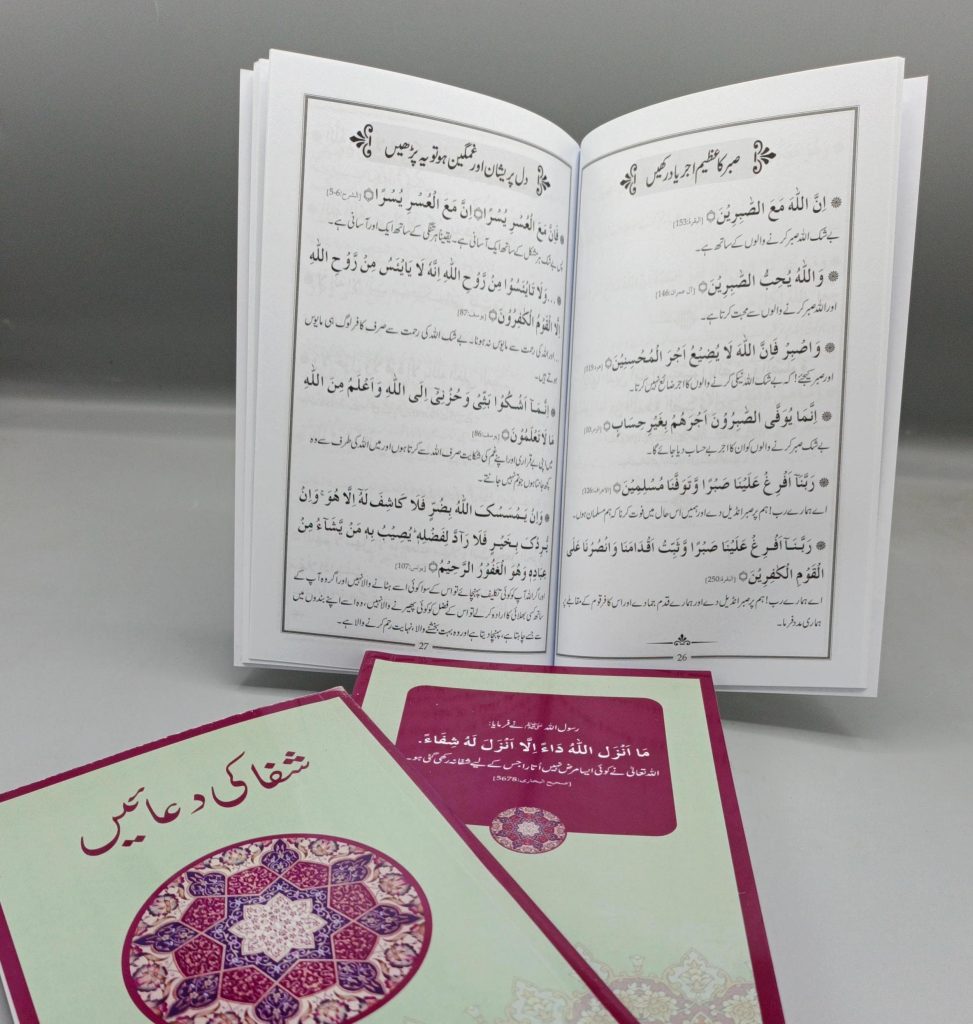 صبر کا عظیم اجر یاد رکھیں
اِنَّ اللّٰهَ مَعَ الصّٰبِرِیْنَ [البقرة:153]
بے شک اللہ صبر کرنے والوں کے ساتھ ہے۔
وَاللّٰهُ یُحِبُّ الصّٰبِرِیْنَ [آل عمران:146]
اور اللہ صبر کرنے والوں سے محبت کرتا ہے۔
وَاصْبِرْ فَاِنَّ اللّٰهَ لَا یُضِیْعُ اَجْرَ الْمُحْسِنِیْنَ
اور صبر کیجئے! کہ بے شک اللہ نیکی کرنے والوں کا اجر ضائع نہیں کرتا۔
اِنَّمَا یُوَفَّی الصّٰبِرُوْنَ اَجْرَهُمْ بِغَیْرِ حِسَابٍ
بے شک صبر کرنے والوں کو ان کا اجر بے حساب دیا جائے گا۔
رَبَّنَاۤ اَفْرِغْ عَلَیْنَا صَبْرًا وَّتَوَفَّنَا مُسْلِمِیْنَ [الاعراف:126]
اے ہمارے رب! ہم پر صبر انڈیل دے اور ہمیں اس حال میں فوت کرنا کہ ہم مسلمان ہوں۔
رَبَّنَاۤ اَفْرِغْ عَلَیْنَا صَبْرًا وَّثَبِّتْ اَقْدَامَنَا وَانْصُرْنَا عَلَی
الْقَوْمِ الْکٰفِرِیْنَ [البقرة:250]
اے ہمارے رب! ہم پر صبر انڈیل دے اور ہمارے قدم جما دے اور اس کافر قوم کے مقابلے پر
ہماری مدد فرما۔
26
دل پریشان اور غمگین ہو تو یہ پڑھیں
فَاِنَّ مَعَ الْعُسْرِ یُسْرًا اِنَّ مَعَ الْعُسْرِ یُسْرًا [الشرح:6-5]
پس بے شک ہر مشکل کے ساتھ ایک آسانی ہے۔ یقیناً ہر تنگی کے ساتھ ایک اور آسانی ہے۔
...وَلَا تَایْئَسُوْا مِنْ رَّوْحِ اللّٰهِ اِنَّهٗ لَا یَایْئَسُ مِنْ رَّوْحِ اللّٰهِ
اِلَّا الْقَوْمُ الْکٰفِرُوْنَ [یوسف:87]
...اور اللہ کی رحمت سے مایوس نہ ہونا۔ بے شک اللہ کی رحمت سے صرف کافر لوگ ہی مایوس
ہوتے ہیں۔
اِنَّمَاۤ اَشْکُوْا بَثِّیْ وَحُزْنِیْۤ اِلَی اللّٰهِ وَاَعْلَمُ مِنَ اللّٰهِ
مَا لَا تَعْلَمُوْنَ [یوسف:86]
میں اپنی بے قراری اور اپنے غم کی شکایت صرف اللہ سے کرتا ہوں اور میں اللہ کی طرف سے وہ
کچھ جانتا ہوں جو تم نہیں جانتے۔
وَاِنْ یَّمْسَسْکَ اللّٰهُ بِضُرٍّ فَلَا کَاشِفَ لَهٗۤ اِلَّا هُوَ ۚ وَاِنْ
یُّرِدْکَ بِخَیْرٍ فَلَا رَآدَّ لِفَضْلِهٖ ؕ یُصِیْبُ بِهٖ مَنْ یَّشَآءُ مِنْ
عِبَادِهٖ وَهُوَ الْغَفُوْرُ الرَّحِیْمُ [یونس:107]
اور اگر اللہ آپ کو کوئی تکلیف پہنچائے تو اس کے سوا کوئی اسے ہٹانے والا نہیں اور اگر وہ آپ کے
ساتھ کسی بھلائی کا ارادہ کر لے تو اس کے فضل کو کوئی پھیرنے والا نہیں، وہ اسے اپنے بندوں میں
سے جسے چاہتا ہے، پہنچا دیتا ہے اور وہ بہت بخشنے والا، نہایت رحم کرنے والا ہے۔
27
رسول اللہ ﷺ نے فرمایا:
مَا اَنْزَلَ اللّٰهُ دَاءً اِلَّا اَنْزَلَ لَهُ شِفَاءً۔
اللہ تعالیٰ نے کوئی ایسا مرض نہیں اُتارا جس کے لیے شفا نہ رکھی گئی ہو۔
[صحیح البخاری:5678]
شفا کی دعائیں